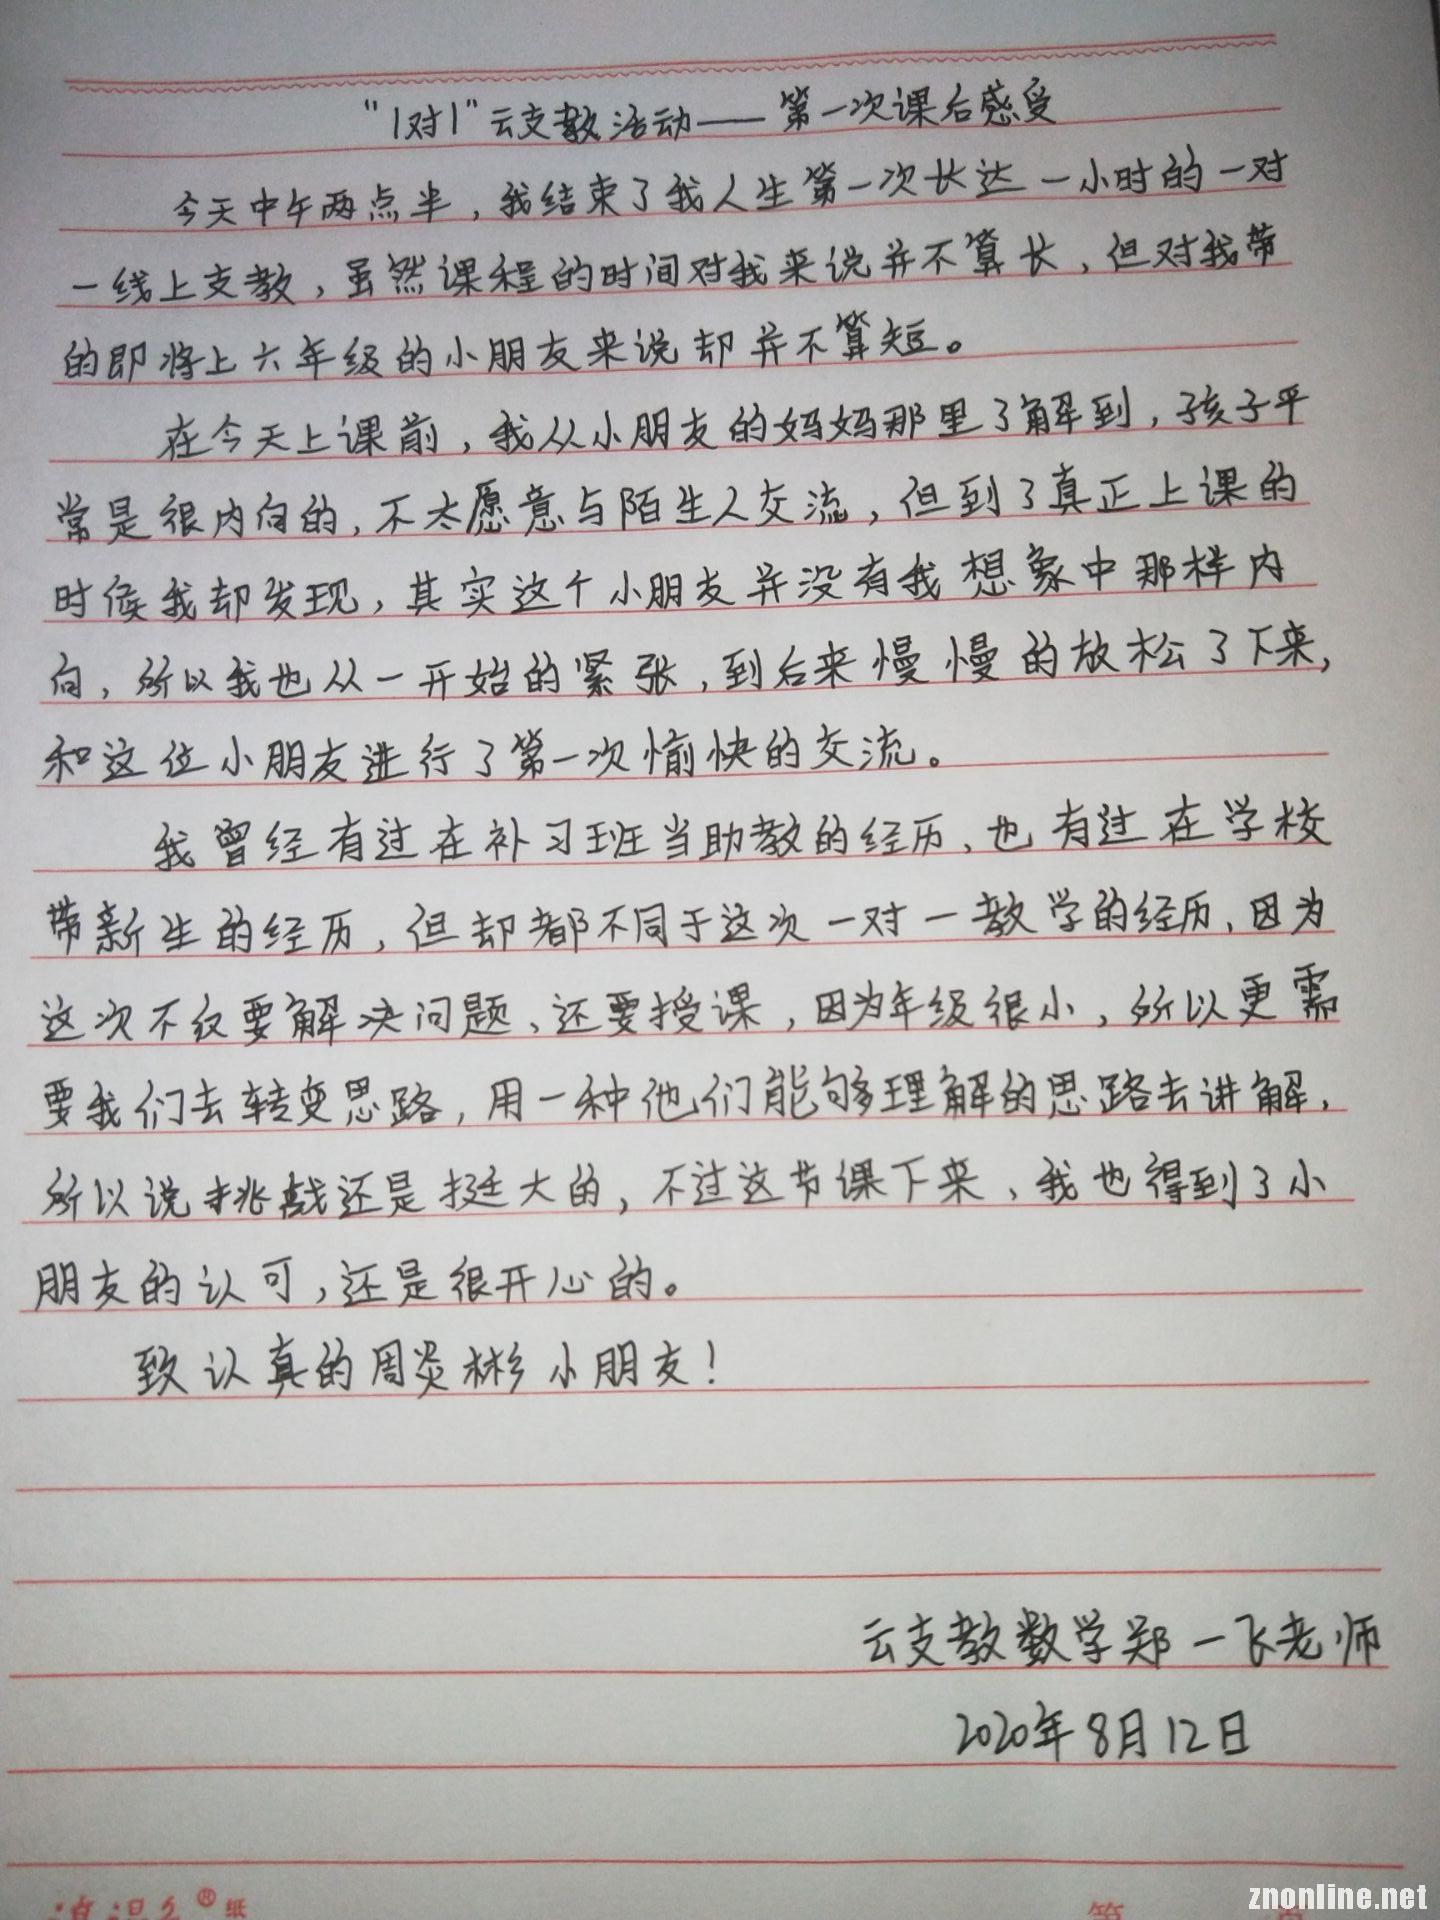 “1对1”云支教活动——第一次课后感受
今天中午两点半，我结束了我人生第一次长达一小时的一对
一线上支教，虽然课程的时间对我来说并不算长，但对我带
的即将上六年级的小朋友来说却并不算短。
在今天上课前，我从小朋友的妈妈那里了解到，孩子平
常是很内向的，不太愿意与陌生人交流，但到了真正上课的
时候我却发现，其实这个小朋友并没有我想象中那样内
向，所以我也从一开始的紧张，到后来慢慢的放松了下来，
和这位小朋友进行了第一次愉快的交流。
我曾经有过在补习班当助教的经历，也有过在学校
带新生的经历，但却都不同于这次一对一教学的经历，因为
这次不仅要解决问题，还要授课，因为年级很小，所以更需
要我们去转变思路，用一种他们能够理解的思路去讲解，
所以说挑战还是挺大的，不过这节课下来，我也得到了小
朋友的认可，还是很开心的。
致认真的周炎彬小朋友！
云支教数学郑一飞老师
2020年8月12日
® 纸
第 页
znonline.net